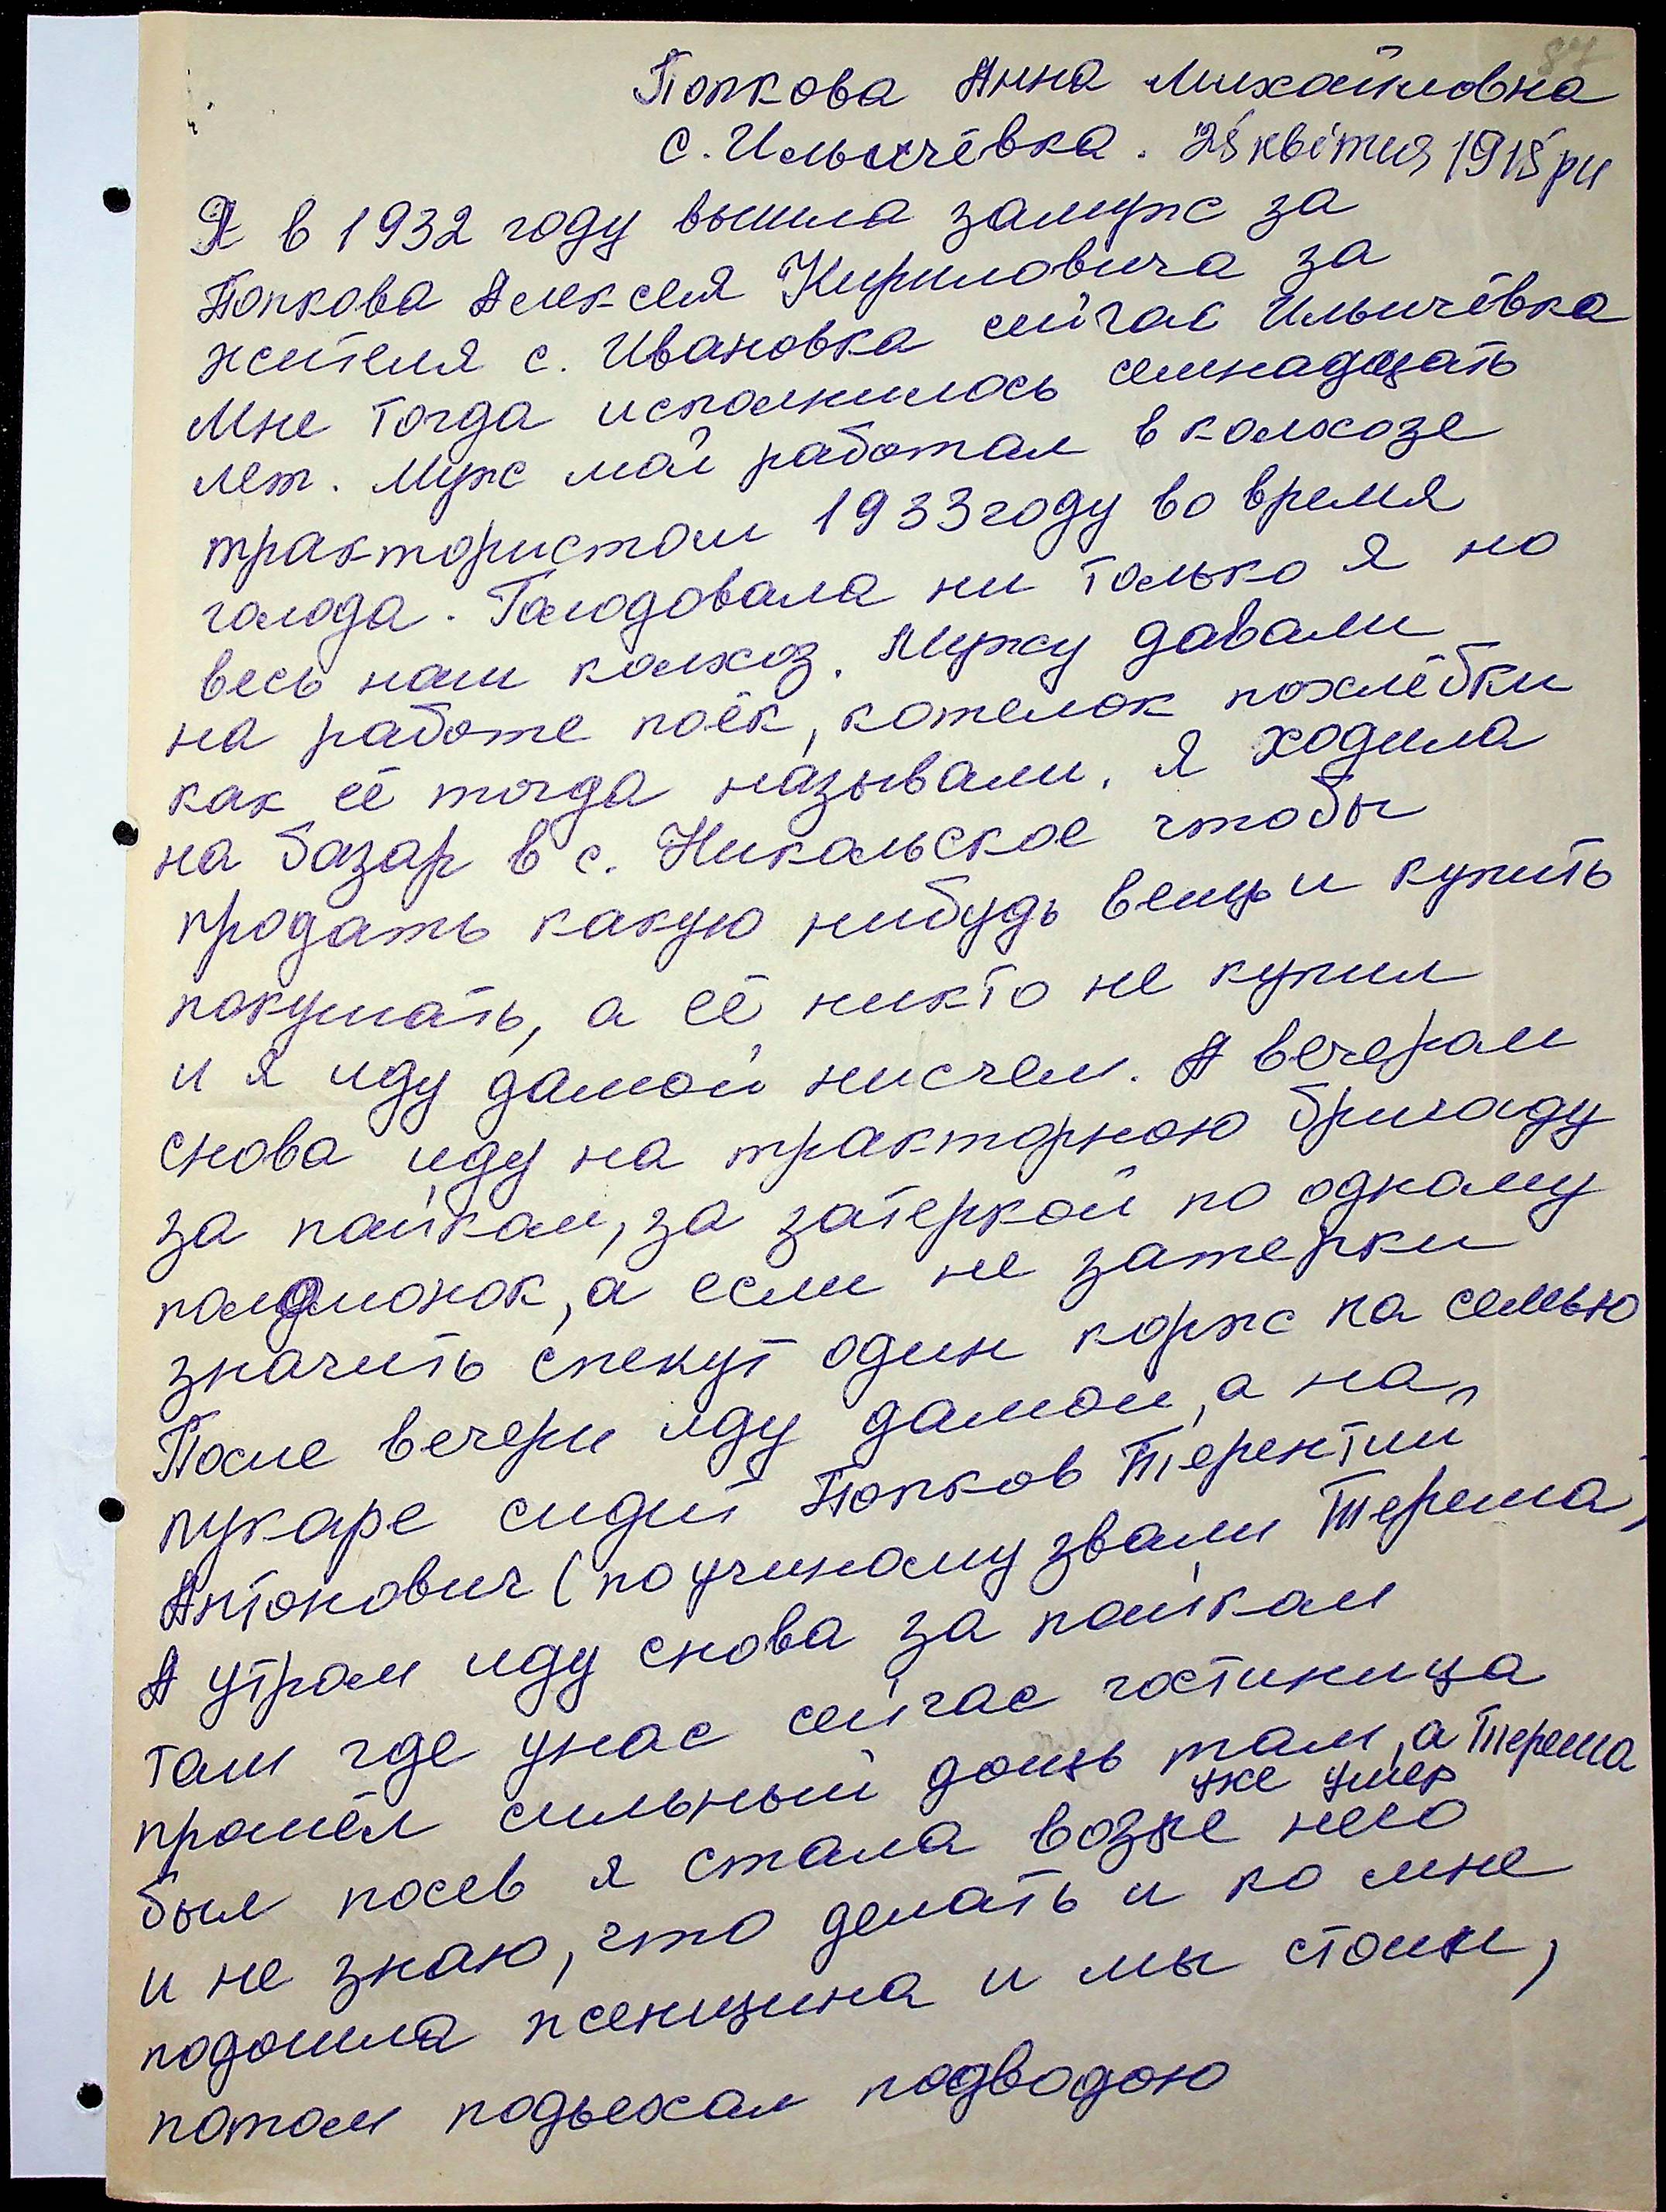 87
Попкова Анна Михайловна
с. Ильичёвка. 25 квітня 1915 рн
Я в 1932 году вышла замуж за
Попкова Алексея Кириловича за
жителя с. Ивановка сейчас Ильичёвка
Мне тогда исполнилось семнадцать
лет. Муж мой работал в колхозе
трактористом 1933 году во время
голода. Галодовала ни только я но
весь наш колхоз. Мужу давали
на работе поёк, котелок похлёбки
как её тогда называли. Я ходила
на базар в с. Никальское чтобы
продать какую нибудь вещь и купить
покушать, а её никто не купил
и я иду дамой нисчем. А вечерам
снова иду на тракторною бригаду
за пайкам, за затеркой по одному
полдмонок, а если не затерки
значить спекут один корж на семью
После вечери иду дамой, а на
пукаре сидит Попков Терентий
Антонович (по учиному звали Тереша)
А утрам иду снова за пайкам
там где унас сейчас гостиница
прошёл сильный дощь там, а Тереша
уже умер
был посев я стала возле него
и не знаю, что делать и ко мне
подошла женщина и мы стоим,
потом подьехал подводою